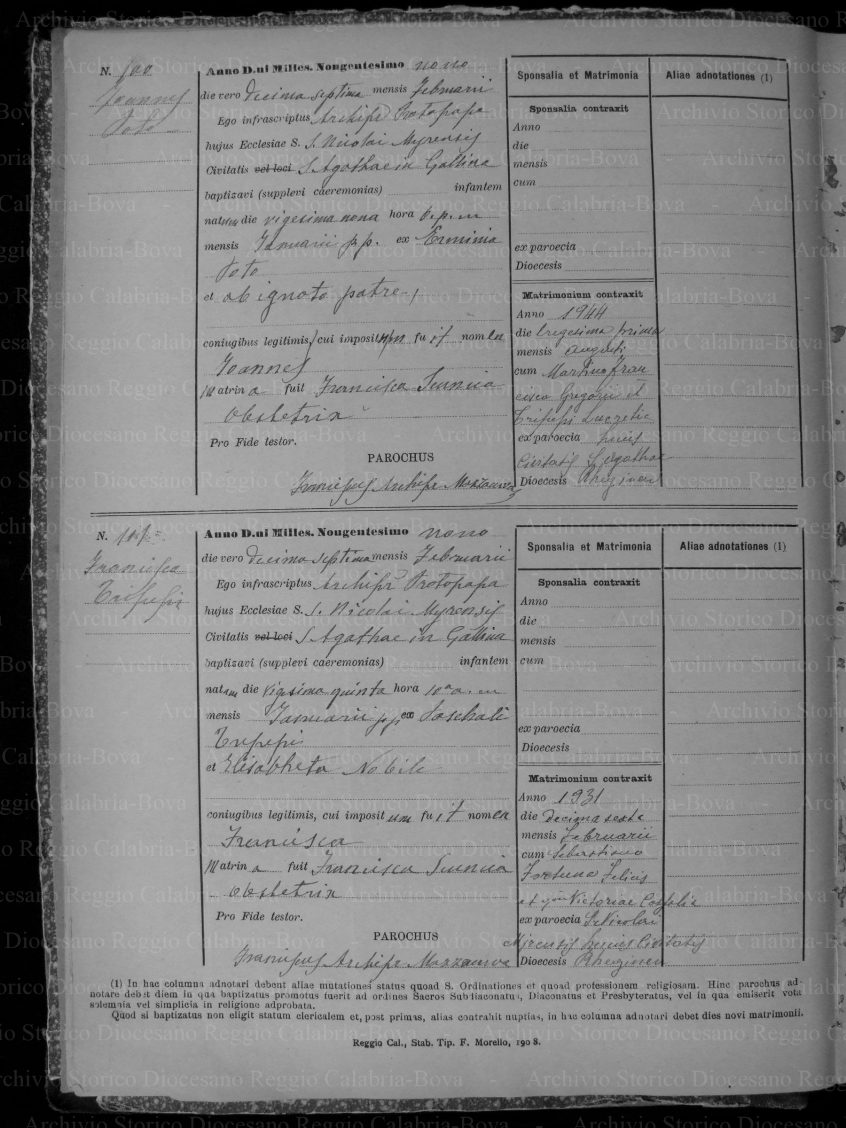 N. 100
Joannes
Foto
Anno D.ni Milles. Nongentesimo nono
die vero decima septima mensis Februarii
Ego infrascriptus Archip. Protopapa
hujus Ecclesiae S. S. Nicolai Myrensis
Civitatis vel loci S. Agathae in Gallina
baptizavi (supplevi caeremonias) infantem
natum die vigesima nona hora 6 p. m
mensis Januarii p. p. ex Erminia
Foto
et ab ignoto patre
coniugibus legitimis, cui impositum fuit nomen
Joannes
Matrina fuit Francisca
Obstetrix
Pro Fide testor.
PAROCHUS
Franciscus Archip.
Sponsalia et Matrimonia
Sponsalia contraxit
Anno
die
mensis
cum
ex paroecia
Dioecesis
Matrimonium contraxit
Anno 1944
die trigesima prima
mensis augusti
cum Martino Fran
cisca Gregorii et
Tripepi Lucretie
ex paroecia huius
Civitatis S. Agathae
Dioecesis Rheginen
Aliae adnotationes (1)
N. 101
Francisca
Tripepi
Anno D.ni Milles. Nongentesimo nono
die vero decima septima mensis Februarii
Ego infrascriptus Archip. Protopapa
hujus Ecclesiae S. S. Nicolai Myrensis
Civitatis vel loci S. Agathae in Gallina
baptizavi (supplevi caeremonias) infantem
natam die vigesima quinta hora 10 a. m
mensis Januarii pp ex Paschali
Tripepi
et Elisabheta Nobile
coniugibus legitimis, cui impositum fuit nomen
Francisca
Matrina fuit Francisca
Obstetrix
Pro Fide testor.
PAROCHUS
Franciscus Archip.
Sponsalia et Matrimonia
Sponsalia contraxit
Anno
die
mensis
cum
ex paroecia
Dioecesis
Matrimonium contraxit
Anno 1931
die decima sexta
mensis Februarii
cum Sebastiano
Fortuna Felicis
et Victoriae
ex paroecia S. Nicolai
Mircensis huius Civitatis
Dioecesis Rheginen
Aliae adnotationes (1)
(1) In hac columna adnotari debent aliae mutationes status quoad S. Ordinationes et quoad professionem religiosam. Hinc parochus ad-
notare debet diem in qua baptizatus promotus fuerit ad ordines Sacros Subdiaconatus, Diaconatus et Presbyteratus, vel in qua emiserit vota
solemnia vel simplicia in religione adprobata.
Quod si baptizatus non eligit statum clericalem et, post primas, alias contrahit nuptias, in hac columna adnotari debet dies novi matrimonii.
Reggio Cal., Stab. Tip. F. Morello, 1908.
Archivio Storico Diocesano Reggio Calabria-Bova